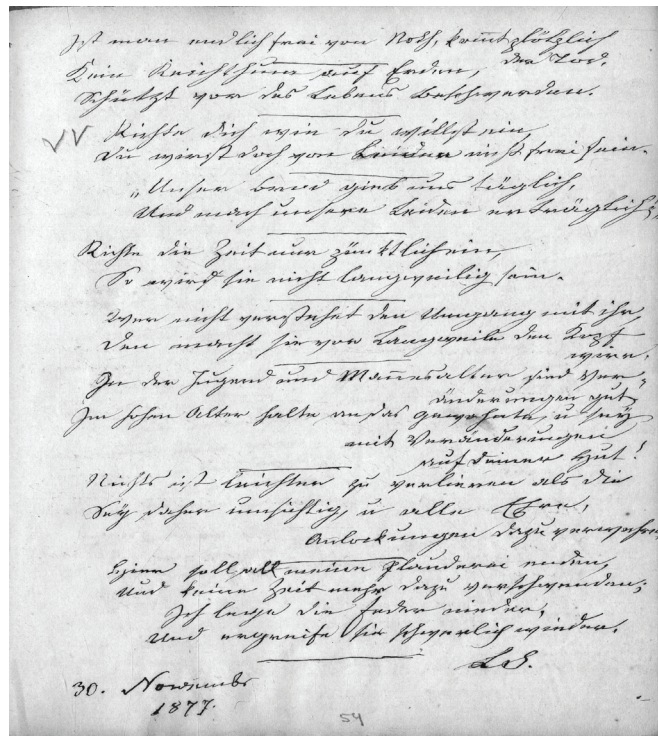 Ist man endlich frei von Noth, kommt plötzlich
der Tod.
Kein Reichthum auf Erden,
Schützt vor des Lebens Beschwerden.
Richte dich wie du willst ein,
Du wirst doch von Leiden nicht frei sein.
„Unser Brod gieb uns täglich,
Und mach unsere Leiden erträglich“
Richte die Zeit nur pünktlich ein,
So wird sie nicht langweilig sein.
Wer nicht verstehet den Umgang mit ihr,
Den macht sie vor Langweile den Kopf
wirr.
In der Jugend und Mannesalter sind Ver-
änderungen gut
Im hohen Alter halte an das gewohnte, u sey
mit Veränderungen
auf deiner Hut!
Nichts ist leichter zu verlieren als die
Ehre,
Sey daher umsichtig, u alle
Anlockungen dazu verwehre.
Hier soll all meine Plauderei enden,
Und keine Zeit mehr dazu verschwenden;
Ich lege die Feder nieder,
Und ergreife sie schwerlich wieder.
L.S.
30. Novembr
1877.
54